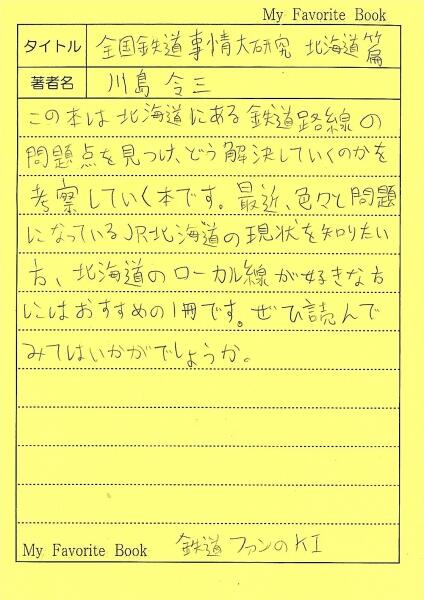 My Favorite Book
タイトル 全国鉄道事情大研究 北海道篇
著者名 川島 令三
この本は北海道にある鉄道路線の
問題点を見つけ、どう解決していくのかを
考察していく本です。最近、色々と問題
になっているJR北海道の現状を知りたい
方、北海道のローカル線が好きな方
にはおすすめの1冊です。ぜひ読んで
みてはいかがでしょうか。
My Favorite Book 鉄道ファンのKI